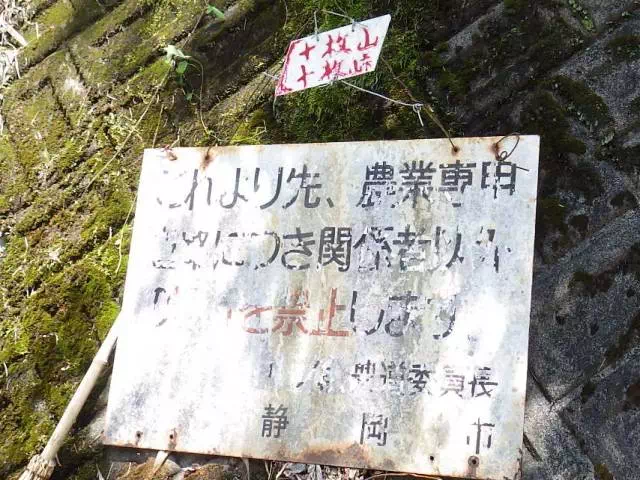 十枚山
十枚峠
これより先、農業専用
につき関係者以外
を禁止します。
農道委員長
静岡市